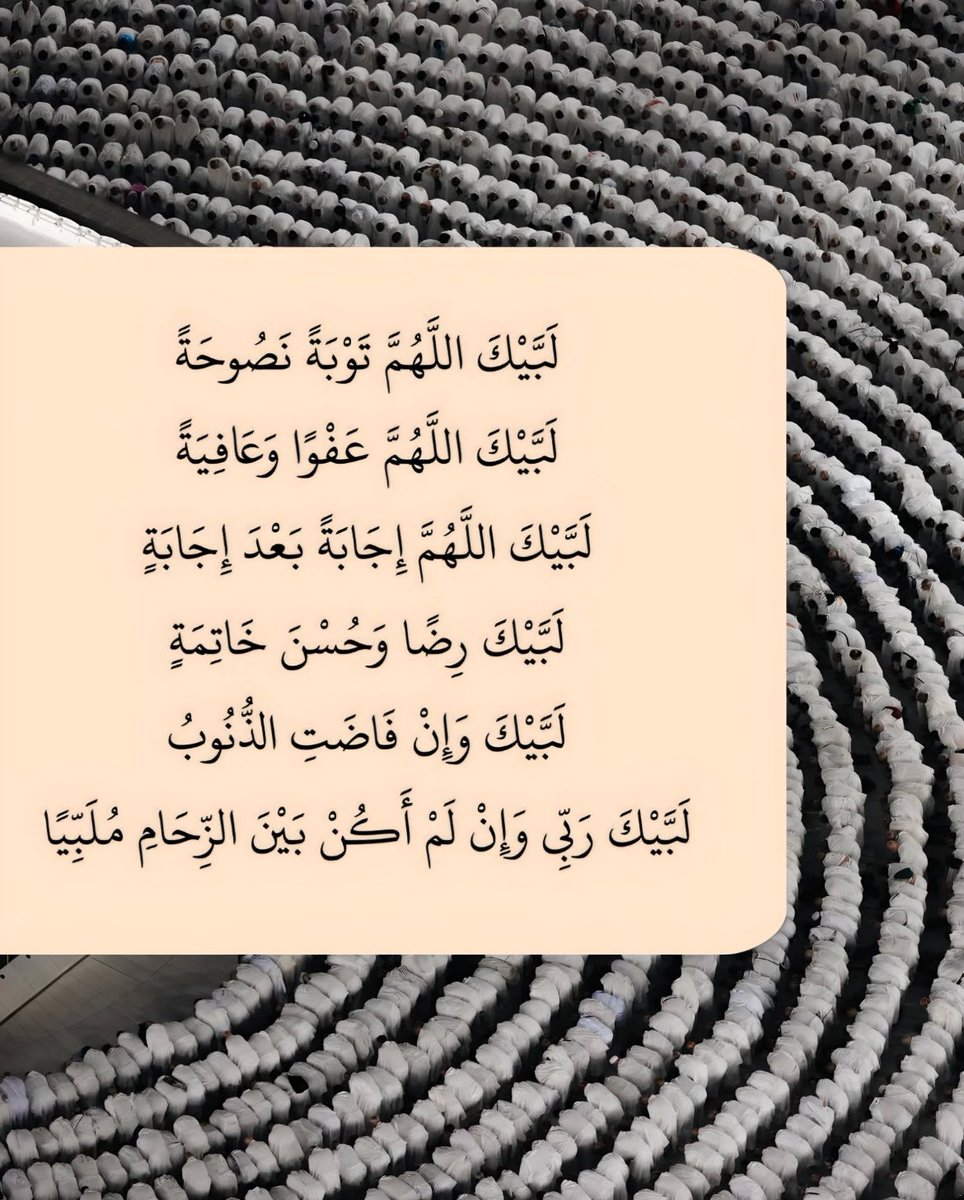 لَبَّيْكَ اللَّهُمَّ تَوْبَةً نَصُوحَةً
لَبَّيْكَ اللَّهُمَّ عَفْوًا وَعَافِيَةً
لَبَّيْكَ اللَّهُمَّ إِجَابَةً بَعْدَ إِجَابَةٍ
لَبَّيْكَ رِضًا وَحُسْنَ خَاتِمَةٍ
لَبَّيْكَ وَإِنْ فَاضَتِ الذُّنُوبُ
لَبَّيْكَ رَبِّي وَإِنْ لَمْ أَكُنْ بَيْنَ الزِّحَامِ مُلَبِّيًا